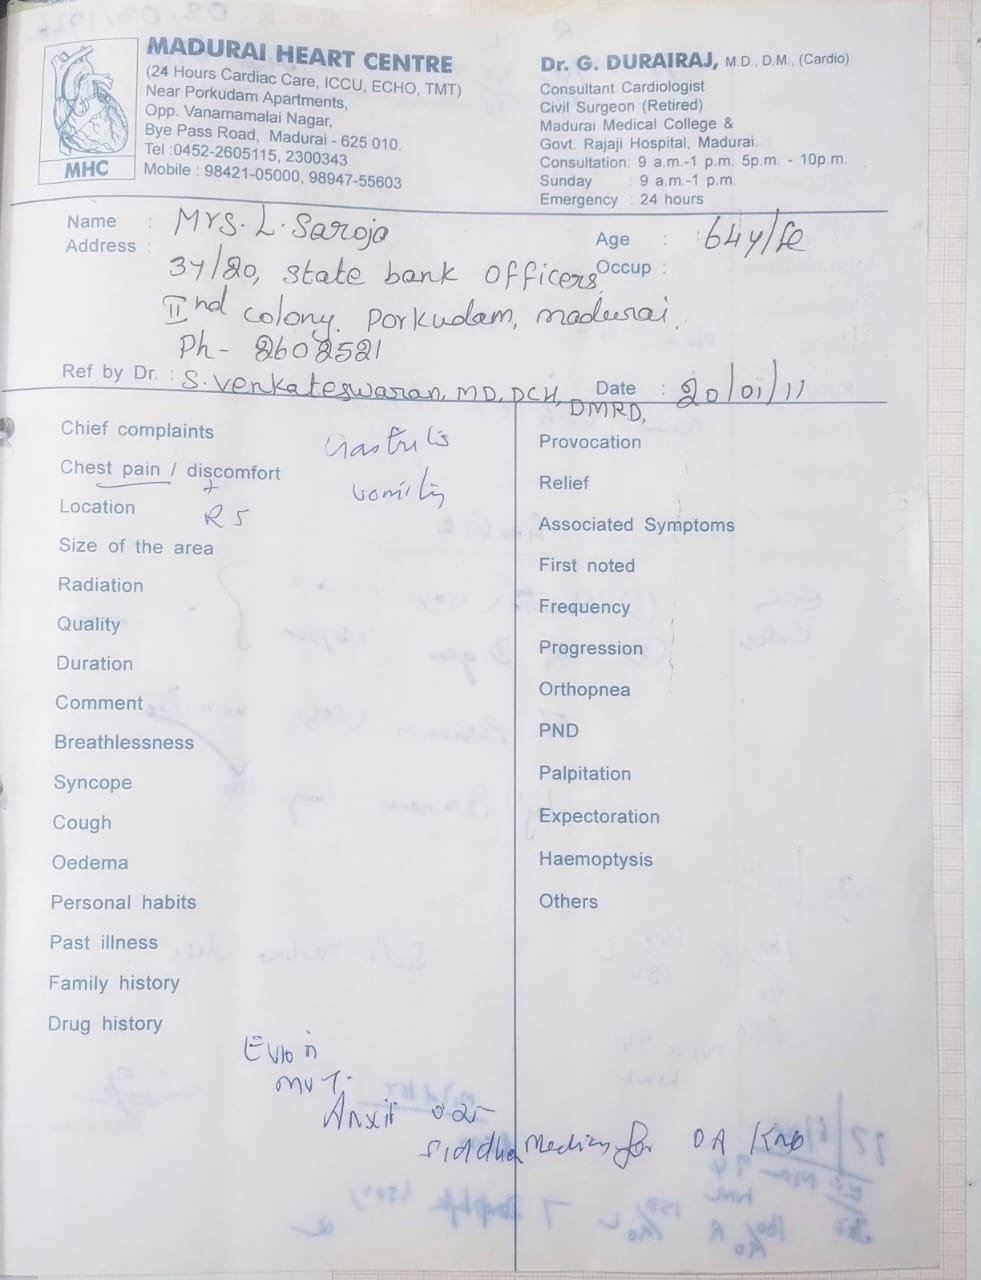 MADURAI HEART CENTRE
(24 Hours Cardiac Care, ICCU, ECHO, TMT)
Near Porkudam Apartments,
Opp. Vanamamalai Nagar,
Bye Pass Road, Madurai - 625 010.
Tel :0452-2605115, 2300343
Mobile : 98421-05000, 98947-55603
MHC
Dr. G. DURAIRAJ, M.D., D.M., (Cardio)
Consultant Cardiologist
Civil Surgeon (Retired)
Madurai Medical College &
Govt. Rajaji Hospital, Madurai.
Consultation: 9 a.m.-1 p.m. 5p.m. - 10p.m.
Sunday : 9 a.m.-1 p.m.
Emergency : 24 hours
Name : Mrs. L. Saroja
Age : 64y/fe
Address : 34/20, state bank officers
Occup :
IInd colony. Porkudam, madurai.
Ph- 2602521
Ref by Dr. : S. Venkateswaran, MD, DCH, DMRD,
Date : 20/01/11
Chief complaints
Gastritis
Chest pain / discomfort
vomiting
+
Location
RS
Size of the area
Radiation
Quality
Duration
Comment
Breathlessness
Syncope
Cough
Oedema
Personal habits
Past illness
Family history
Drug history
Provocation
Relief
Associated Symptoms
First noted
Frequency
Progression
Orthopnea
PND
Palpitation
Expectoration
Haemoptysis
Others
Evion
MVT.
Anxit 0.25
Siddha for OA Knee